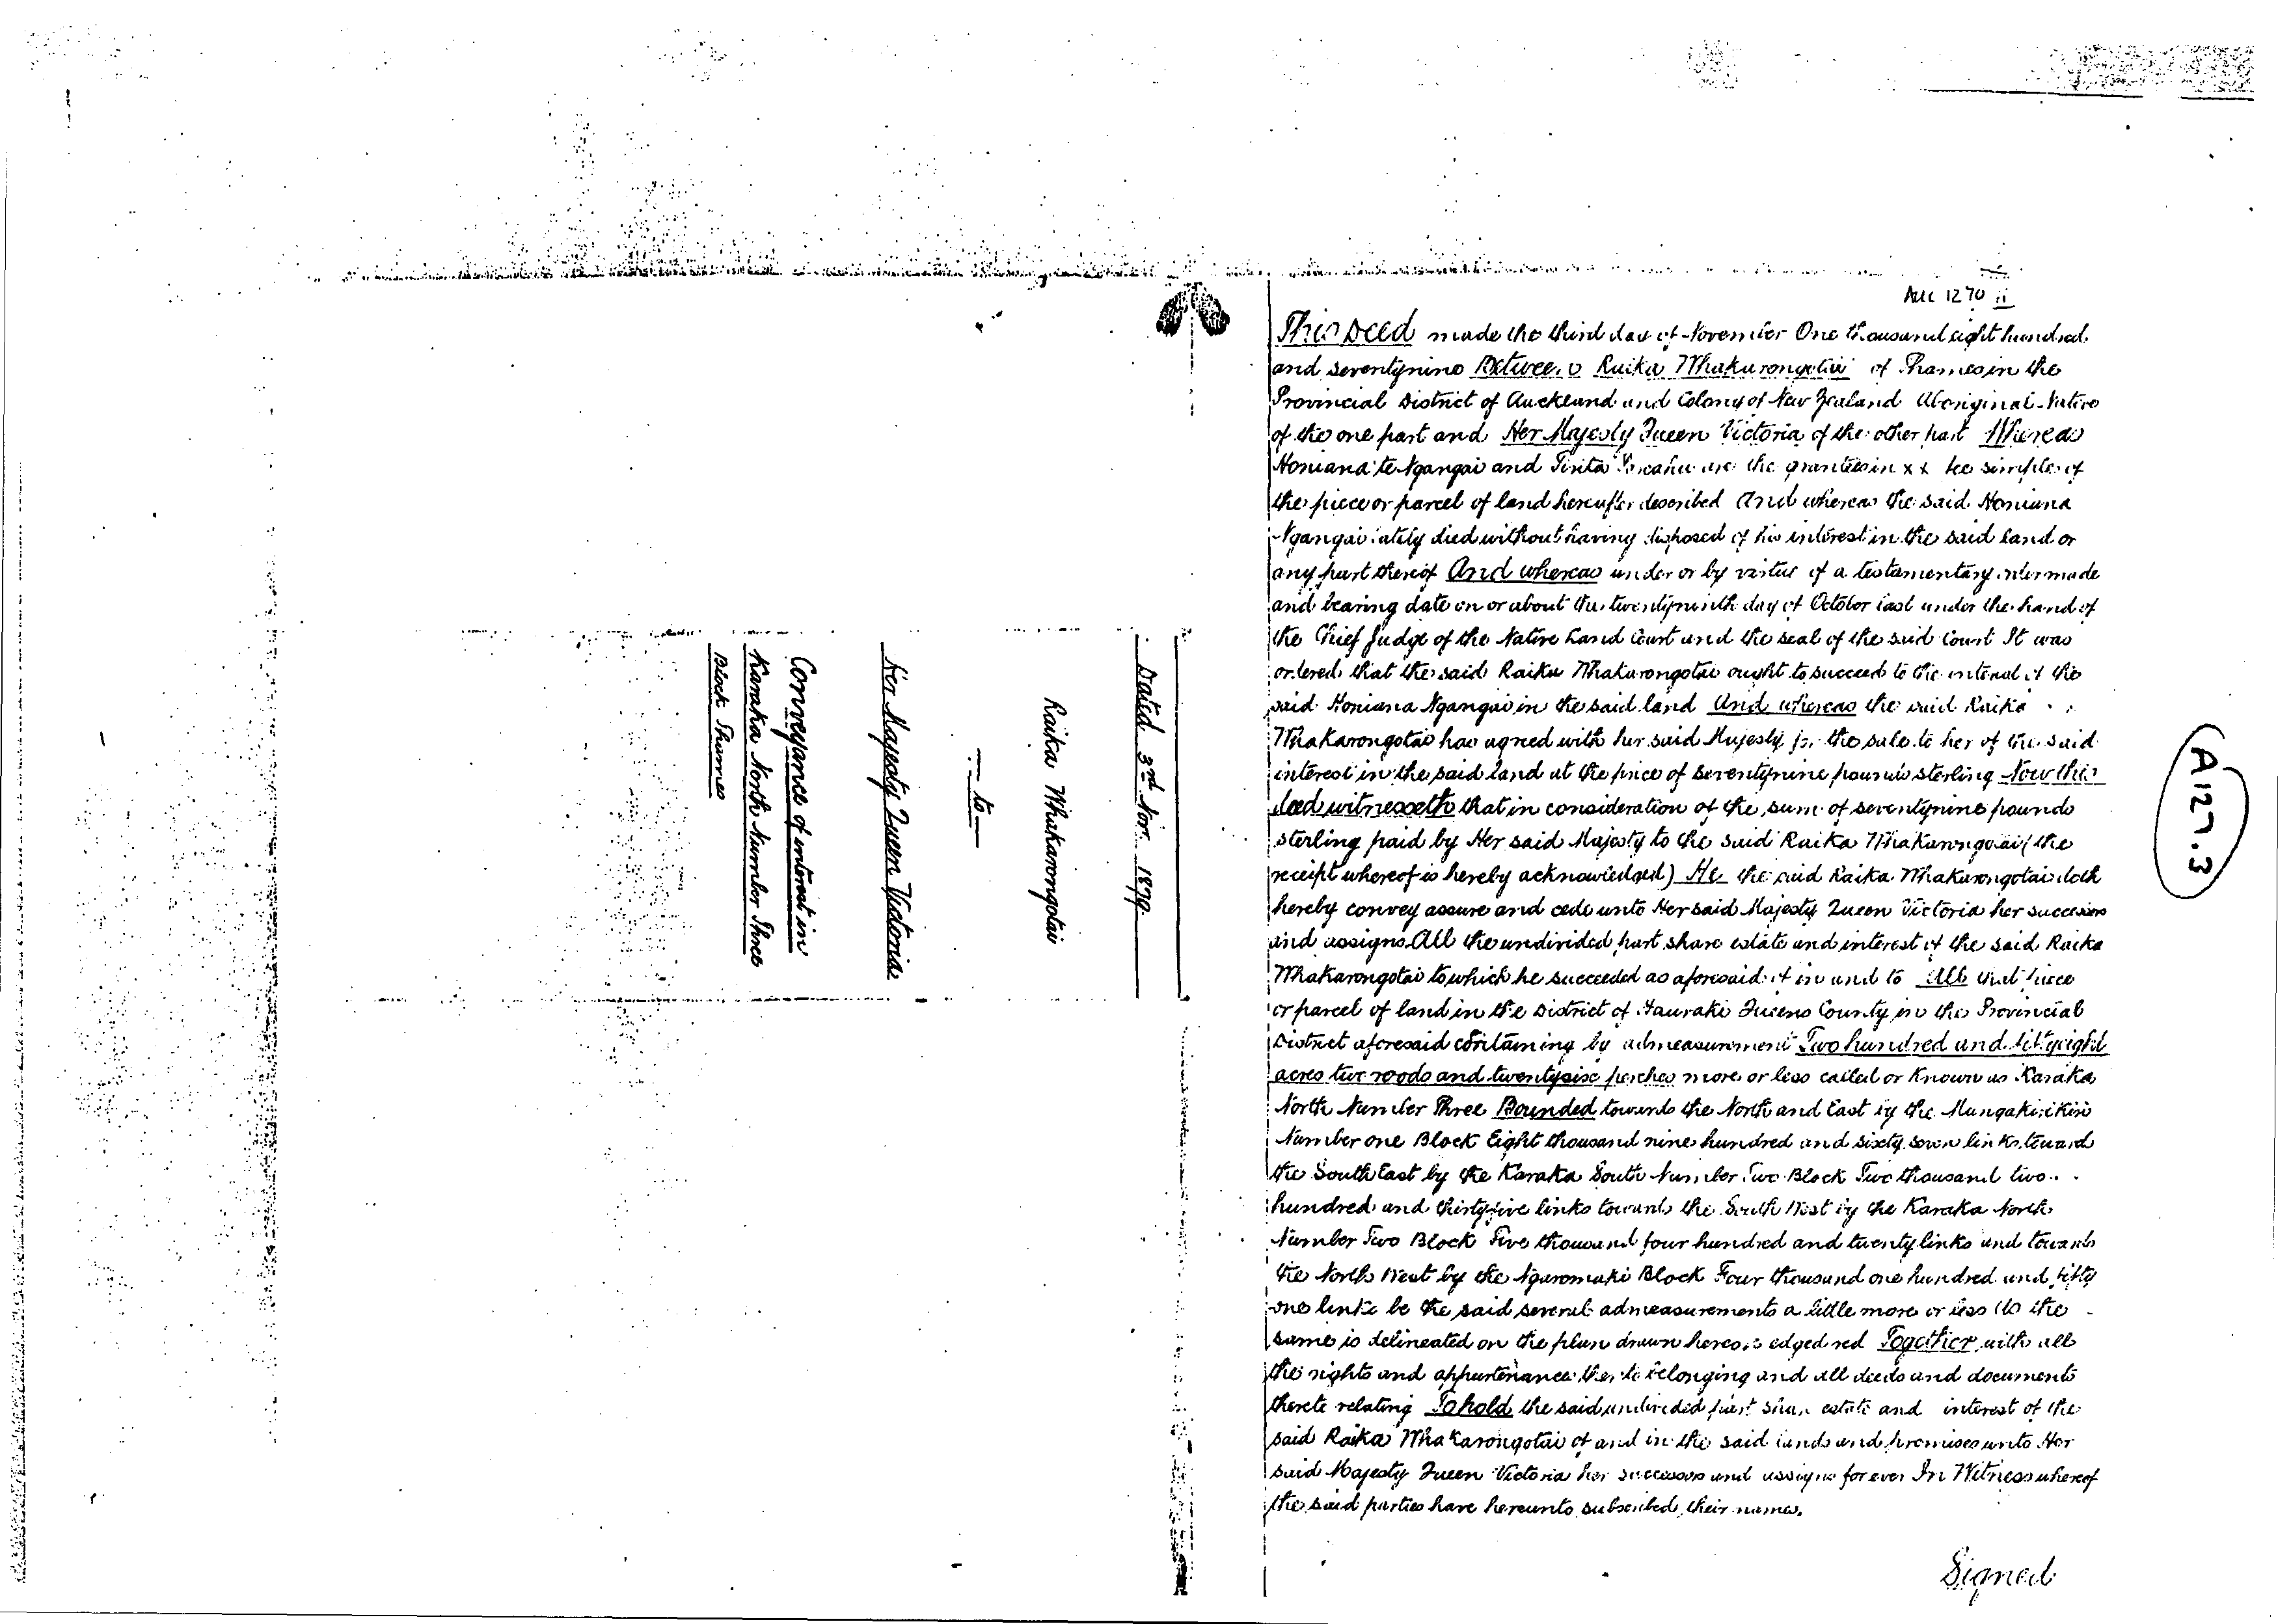 Dated 3rd Nov. 1879
Raika Whakarongotai
to
Her Majesty Queen Victoria
Conveyance of interest in
Karaka North Number Three
Block Thames
1270
This Deed made the third day of November One thousand eight hundred
and seventynine Between Raika Whakarongotai of Thames in the
Provincial District of Auckland and Colony of New Zealand Aboriginal Native
of the one part and Her Majesty Queen Victoria of the other part Whereas
Honiana te Ngangai and Tinta are the grantees in x x fee simple of
the piece or parcel of land hereafter described And whereas the said Honiana
Ngangai lately died without having disposed of his interest in the said land or
any part thereof And whereas under or by virtue of a testamentary order made
and bearing date on or about the twentyninth day of October last under the hand of
the Chief Judge of the Native Land Court and the seal of the said Court It was
ordered that the said Raika Whakarongotai ought to succeed to the interest of the
said Honiana Ngangai in the said land And whereas the said Raika
Whakarongotai has agreed with her said Majesty for the sale to her of the said
interest in the said land at the price of seventynine pounds sterling Now this
deed witnesseth that in consideration of the sum of seventynine pounds
sterling paid by Her said Majesty to the said Raika Whakarongotai (the
receipt whereof is hereby acknowledged) He the said Raika Whakarongotai doth
hereby convey assure and cede unto Her said Majesty Queen Victoria her successors
and assigns All the undivided part share estate and interest of the said Raika
Whakarongotai to which he succeeded as aforesaid of in and to All that piece
or parcel of land in the District of Hauraki Queens County in the Provincial
District aforesaid containing by admeasurement Two hundred and fiftyeight
acres two roods and twentysix perches more or less called or known as Karaka
North Number Three Bounded towards the North and East by the Mangakirikiri
Number one Block Eight thousand nine hundred and sixty seven links toward
the South East by the Karaka South Number Two Block Two thousand two
hundred and thirtyfive links towards the South West by the Karaka North
Number Two Block Five thousand four hundred and twenty links and towards
the North West by the Ngaromaki Block Four thousand one hundred and fifty
one links be the said several admeasurements a little more or less as the
same is delineated on the plan drawn hereon edged red Together with all
the rights and appurtenances thereto belonging and all deeds and documents
thereto relating To hold the said undivided part share estate and interest of the
said Raika Whakarongotai of and in the said lands and premises unto Her
said Majesty Queen Victoria her successors and assigns for ever In Witness whereof
the said parties have hereunto subscribed their names.
Signed
A127.3